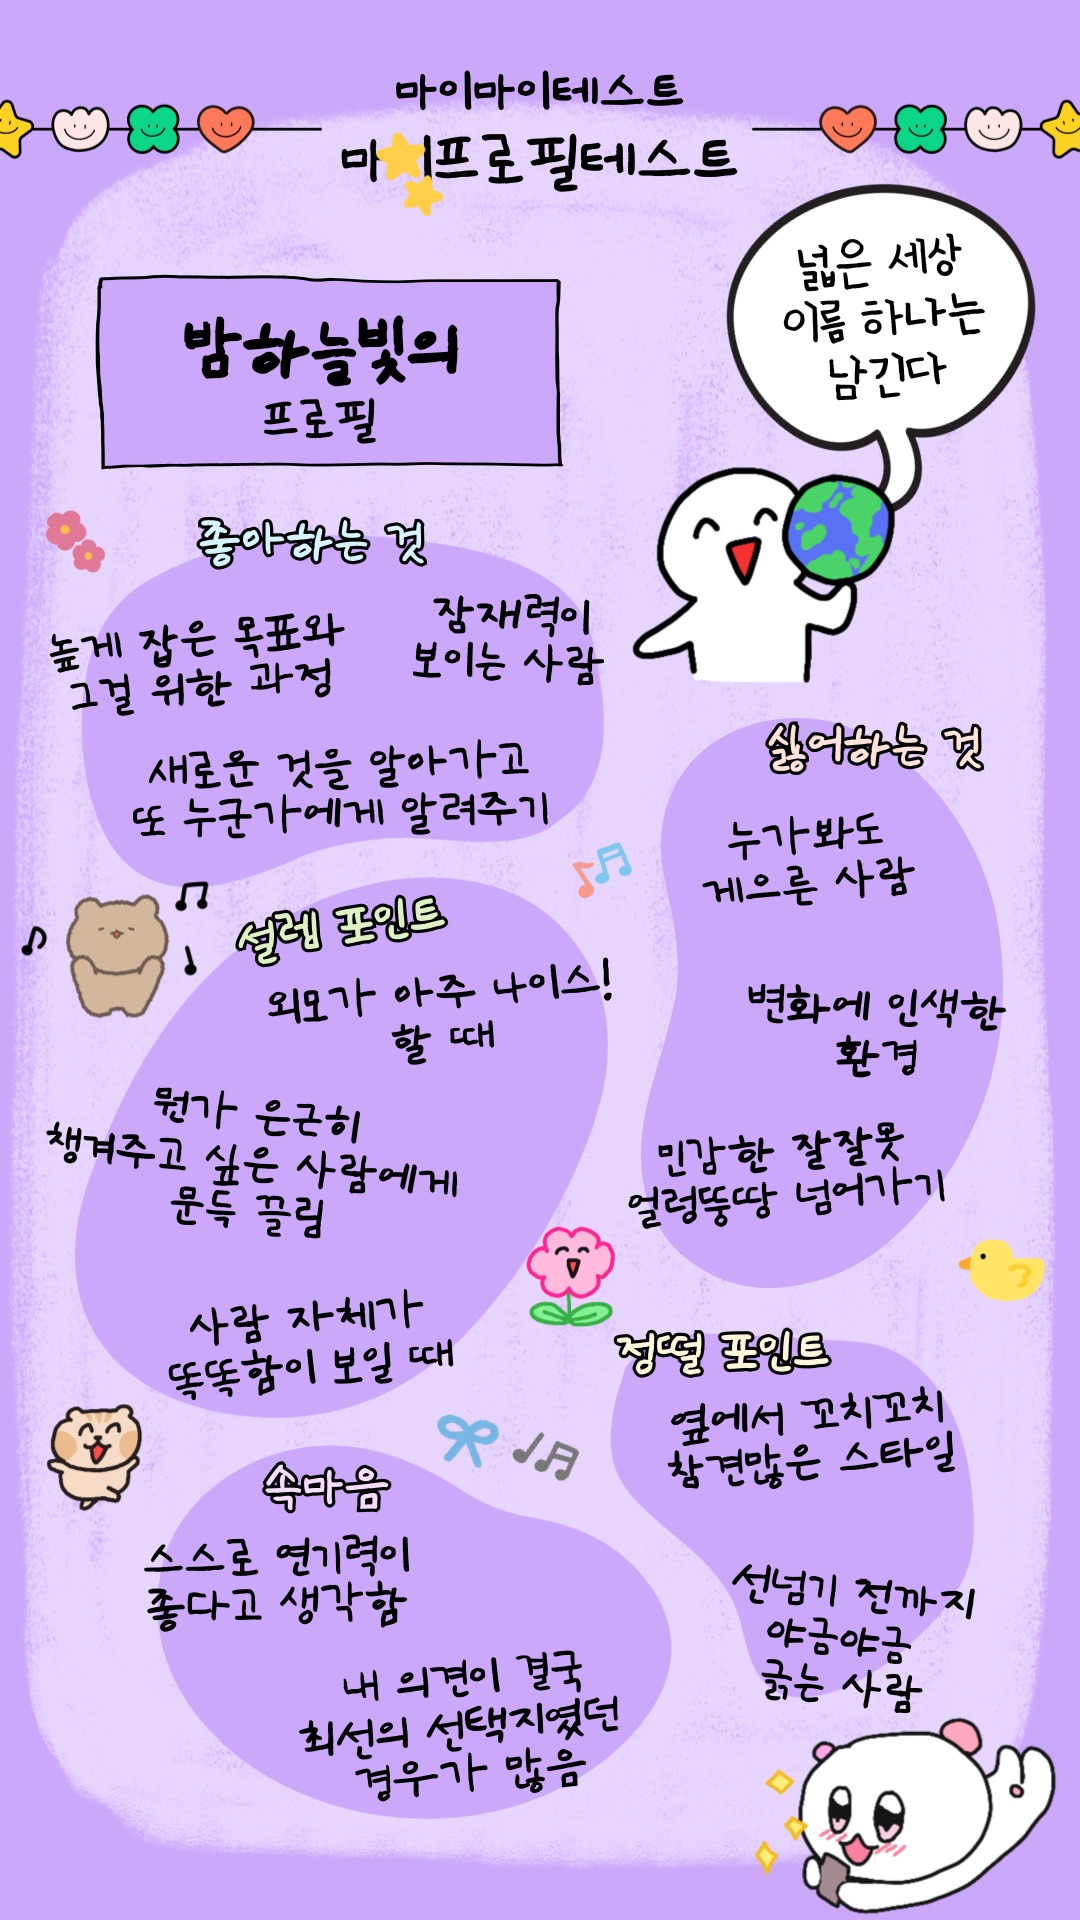 마이마이테스트
마이프로필테스트
넓은 세상
이름 하나는
남긴다
밤하늘빛의
프로필
좋아하는 것
높게 잡은 목표와
그걸 위한 과정
잠재력이
보이는 사람
새로운 것을 알아가고
또 누군가에게 알려주기
싫어하는 것
누가봐도
게으른 사람
변화에 인색한
환경
민감한 잘잘못
얼렁뚱땅 넘어가기
설렘 포인트
외모가 아주 나이스!
할 때
뭔가 은근히
챙겨주고 싶은 사람에게
문득 끌림
사람 자체가
똑똑함이 보일 때
정떨 포인트
옆에서 꼬치꼬치
참견많은 스타일
선넘기 전까지
야금야금
긁는 사람
속마음
스스로 연기력이
좋다고 생각함
내 의견이 결국
최선의 선택지였던
경우가 많음